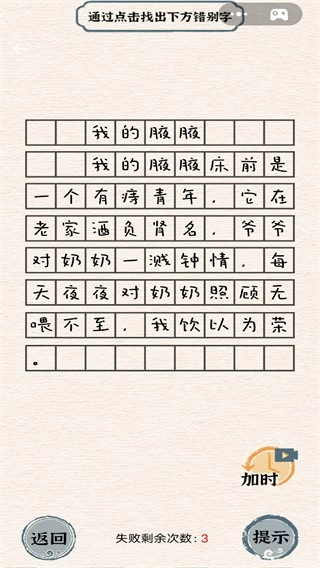 通过点击找出下方错别字
我的腋腋
我的腋腋床前是
一个有痔青年，它在
老家酒负肾名，爷爷
对奶奶一溅钟情，每
天夜夜对奶奶照顾无
喂不至，我饮以为荣
。
加时
返回
失败剩余次数：3
提示